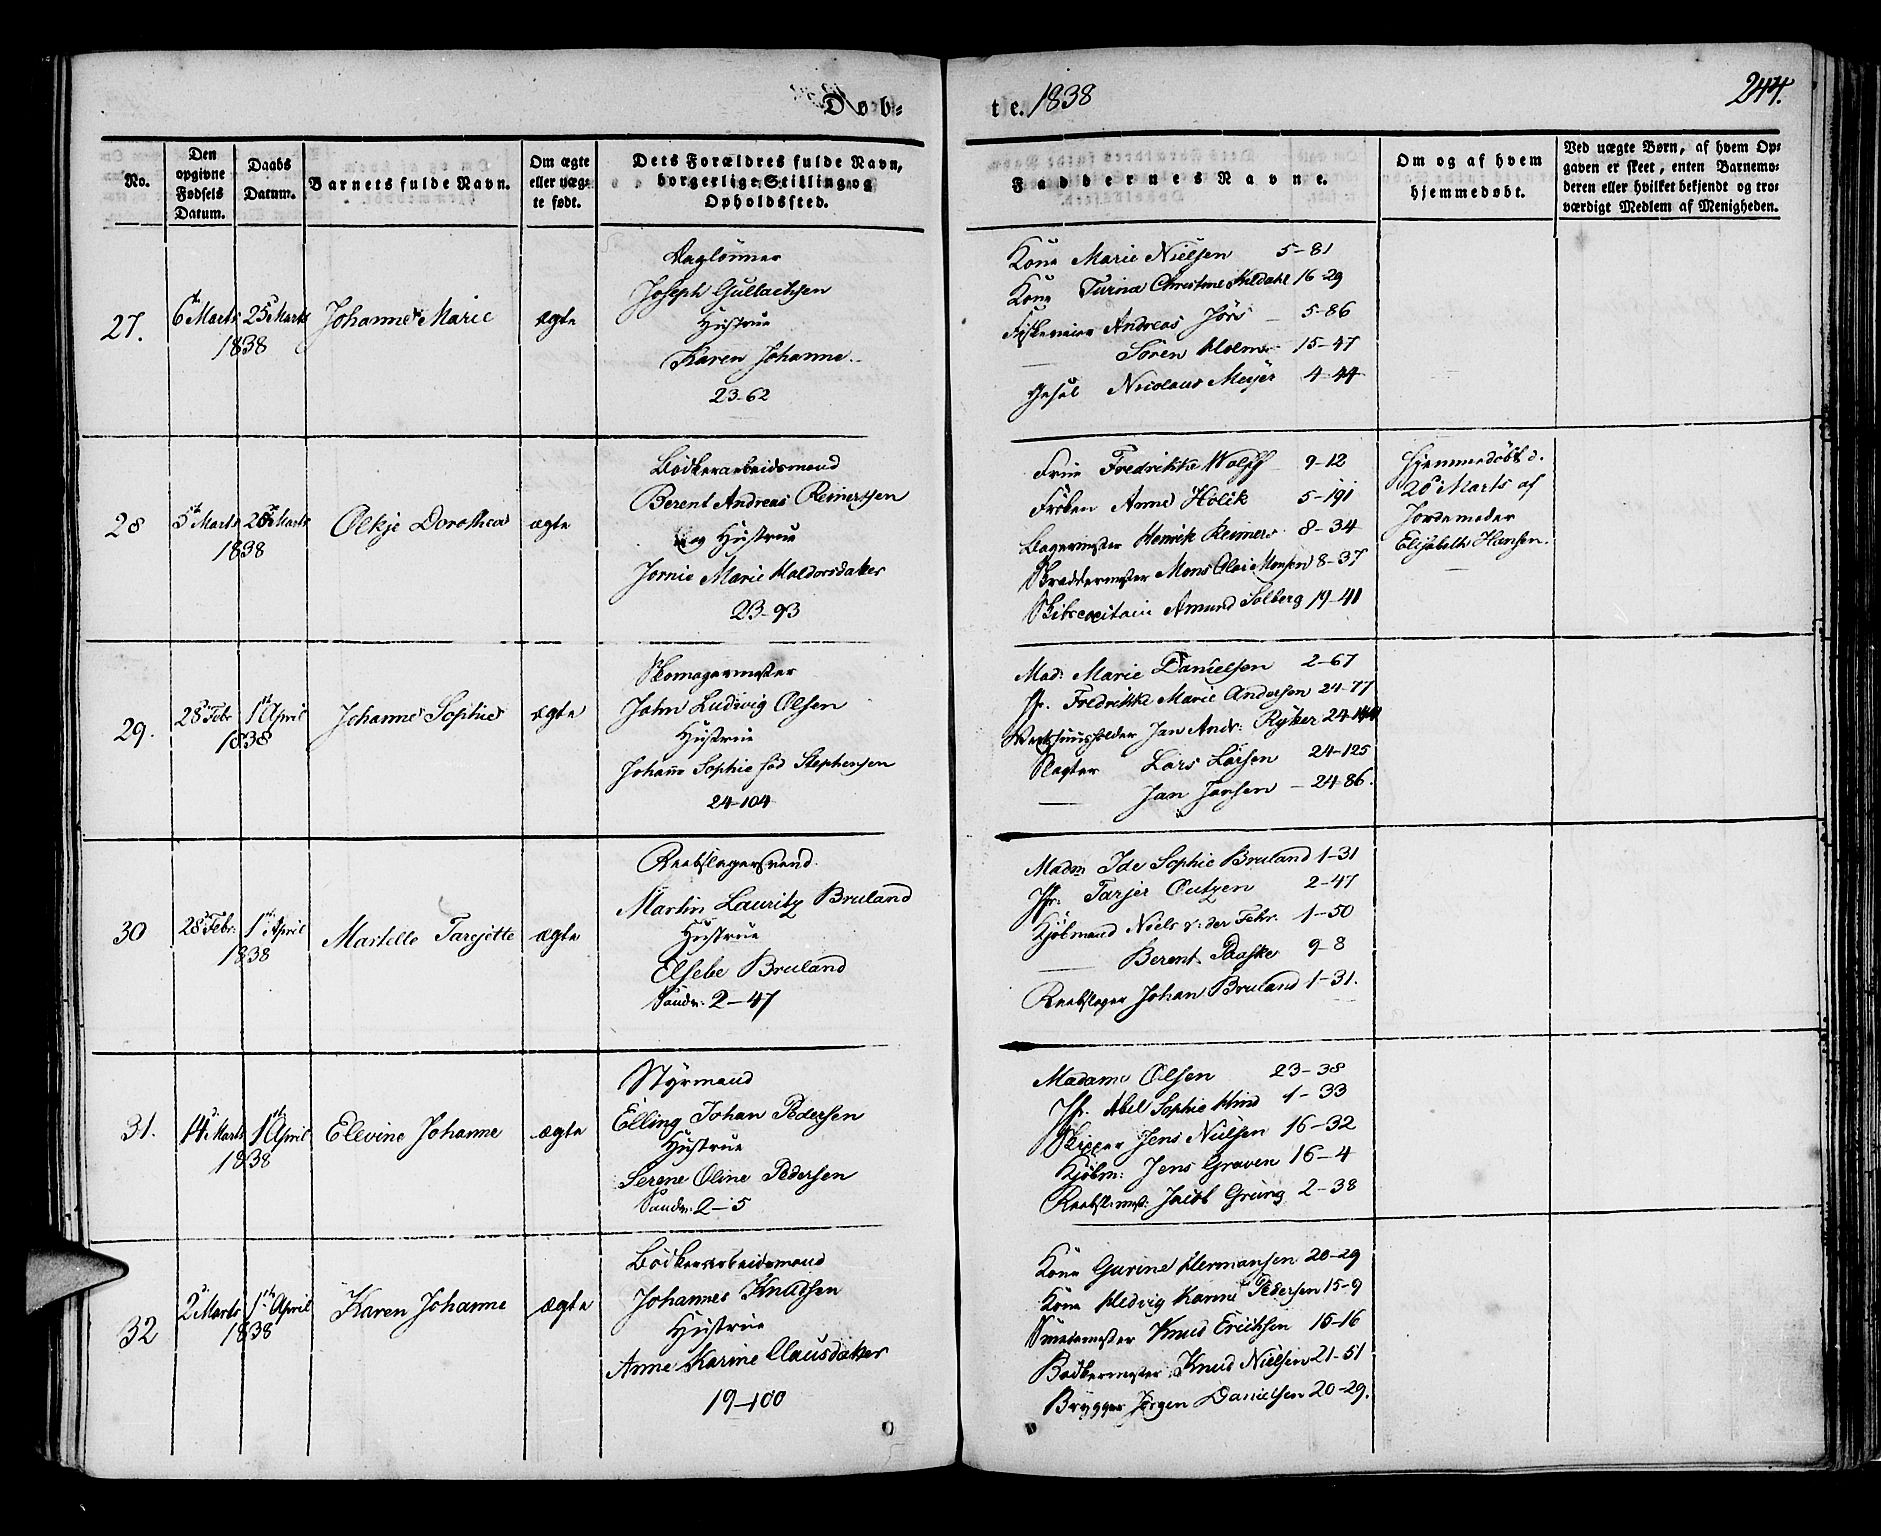 Døb-
te. 1838
244.
No.
Den opgivne Fødsels Datum.
Daabs Datum.
Barnets fulde Navn.
Om ægte eller uæg- te født.
Dets Forældres fulde Navn, borgerlige Stilling og Opholdssted.
Faddernes Navne.
Om og af hvem hjemmedøbt.
Ved uægte Børn, af hvem Op- gaven er skeet, enten Barnemo- deren eller hvilket bekjendt og tro- værdigt Medlem af Menigheden.
27.
6te Marts
25 Marts
1838
Johanne Marie
ægte
Daglönner
Joseph Gullachsen
Hustrue
Karen Johanne
23-62
Kone Marie Nielsen 5-81
Kone Christine 16-29
Andreas Jörs 5-86
Sören Holm 15-47
Nicolaus Meyer 4-44
28
5te Marts
25 Marts
1838
Oelkje Dorothea
ægte
Bödkerarbeidsmand
Berent Andreas Reinertsen
og Hustrue
Jornie Marie Haldorsdatter
23-93
Frue Fredrikke Wolff 9-12
Fröken Anne Holck 5-191
Bagermester Henrik Reimers 8-34
Skræddermester Mons Olai Monsen 8-37
Skibscapitain Amund Solberg 19-41
Hjemmedöbt d.
20 Marts af
Jordemoder
Elisabeth Hansen.
29.
28 Febr
1ste April
1838
Johanne Sophie
ægte
Skomagermester
John Ludwig Olsen
Hustrue
Johane Sophie föd Stephensen
24-104
Mad: Marie Danielsen 2-67
Jfr. Fredrikke Marie Andersen 24-77
Jan Andr: Ryker 24-144
Slagter Lars Larsen 24-125
Jan Jansen - 24-86.
30
28 Febr:
1ste April
1838
Martelle Tarjette
ægte
Reebslagersvend.
Martin Lauritz Bruland
Hustrue
Elsebe Bruland
Sandv: 2-47
Madm Ide Sophie Bruland 1-31
Jfr. Tarjer Outzen 2-47
Kjöbmand Niels v: der Fehr. 1-50
Berent Paaske 9-8
Reebslager Johan Bruland 1-31.
31.
14 Marts
1ste April
1838
Elevine Johanne
ægte
Styrmand
Elling Johan Pedersen
Hustrue
Serene Oline Pedersen
Sandv: 2-5
Madame Olsen 23-38
Jfr. Abel Sophie Hind 1-33
Skipper Jens Nielsen 16-32
Kjöbm: Jens Graven 16-4
Reebsl:mest: Jacob Grung 2-38
32
2 Marts
1ste April
1838
Karen Johanne
ægte
Bödkerarbeidsmand
Johannes Knudsen
Hustrue
Anne Karine Clausdatter
19-100
Kone Gurine Hermansen 20-29
Kone Hedvig Karine Pedersen 15-9
Smedemester Knud Ericksen 15-16
Bödkermester Knud Nielsen 21-51
Brygger Jörgen Danielsen 20-29.